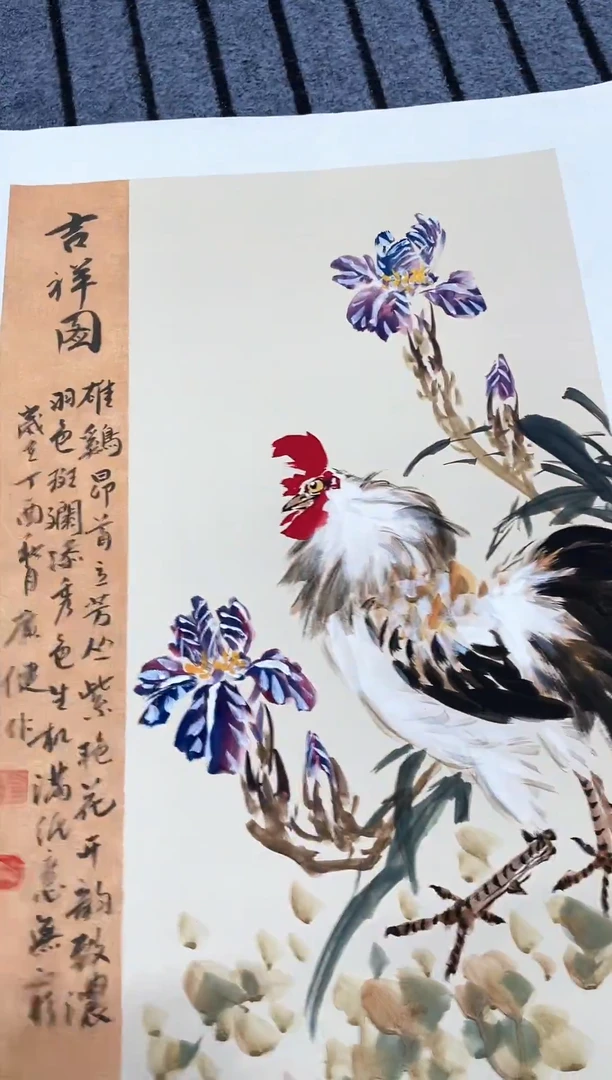 吉祥图
雄鷄昂首立芳丛紫艳花开韵致濃
羽色斑瀾添秀色生机满纸意無穷
歲在丁酉秋月健作